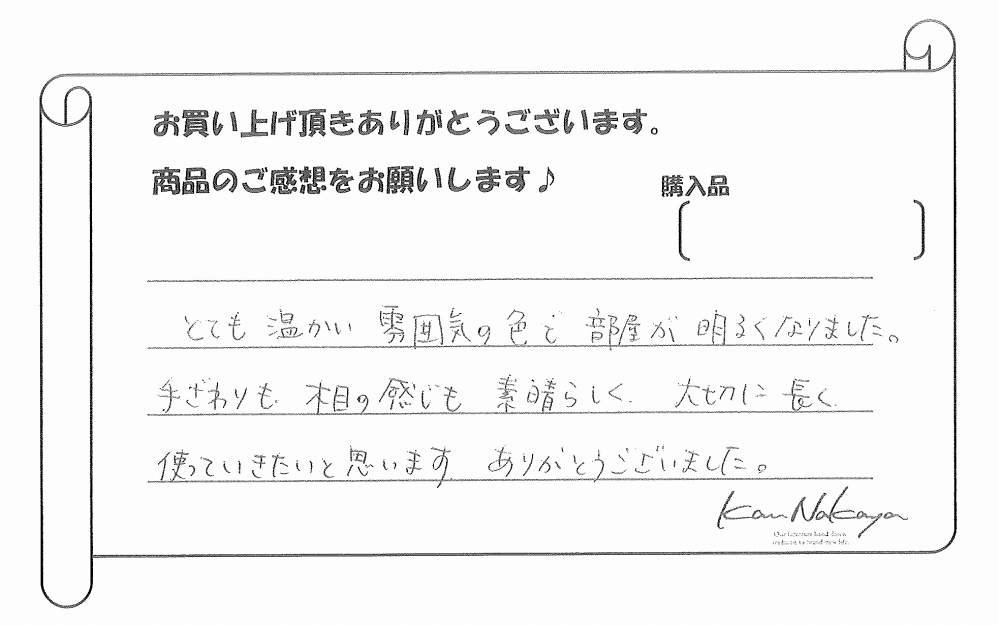 お買い上げ頂きありがとうございます。
商品のご感想をお願いします♪
購入品
とても温かい雰囲気の色で部屋が明るくなりました。
手ざわりも木目の感じも素晴らしく大切に長く
使っていきたいと思います。ありがとうございました。
Kan Nakaya
Our furniture hand down
tradition to brand-new life.